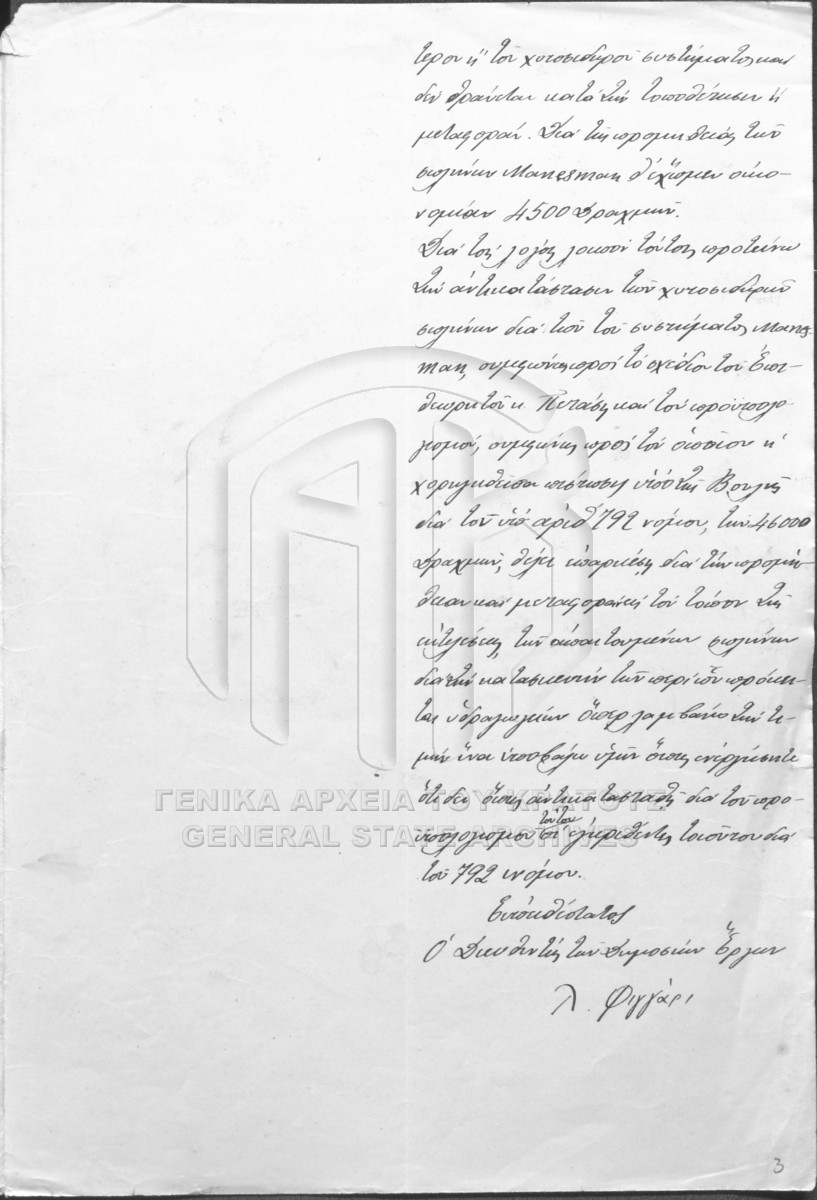 τερον ἢ τοῦ χυτοσιδηροῦ συστήματος καὶ
δὲν θραύνται κατὰ τὴν τοποθέτησιν ἢ
μεταφοράν. Διὰ τῆς προμηθείας τῶν
σωλήνων Manesman θὰ ἔχωμεν οἰκο-
νομίαν 4500 δραχμῶν.
Διὰ τοὺς λόγους λοιπὸν τούτους προτείνω
τὴν ἀντικατάστασιν τῶν χυτοσιδηρῶν
σωλήνων διὰ τῶν τοῦ συστήματος Manes-
man, συμφώνως πρὸς τὸ σχέδιον τοῦ Ἐπι-
θεωρητοῦ κ. Πετάση καὶ τὸν προϋπολο-
γισμόν, συμφώνως πρὸς τὸν ὁποῖον ἡ
χορηγηθεῖσα πίστωσις ὑπὸ τῆς Βουλῆς
διὰ τοῦ ὑπ' ἀριθ 792 νόμου, τῶν 46000
δραχμῶν, θέλει ἐπαρκέσῃ διὰ τὴν προμή-
θειαν καὶ μεταφορὰν εἰς τὸν τόπον τῆς
ἐκτελέσεως, τῶν ἀπαιτουμένων σωλήνων
διὰ τὴν κατασκευὴν τῶν περὶ ὧν πρόκει-
ται ὑδραγωγείων ὅπερ λαμβάνω τὴν τι-
μὴν ἵνα ὑποβάλω ὑμῖν ὅπως ἐνεργήσητε
ὅτι δεῖ ὅπως ἀντικατασταθῇ διὰ τοῦ προ-
ϋπολογισμοῦ τούτου ὁ ἐγκριθεὶς τοιοῦτον διὰ
τοῦ 792 νόμου.
Εὐπειθέστατος
Ὁ Διευθυντὴς τῶν Δημοσίων Ἔργων
Λ. Φιγγάρι
3
ΓΕΝΙΚΑ ΑΡΧΕΙΑ ΤΟΥ ΚΡΑΤΟΥΣ
GENERAL STATE ARCHIVES